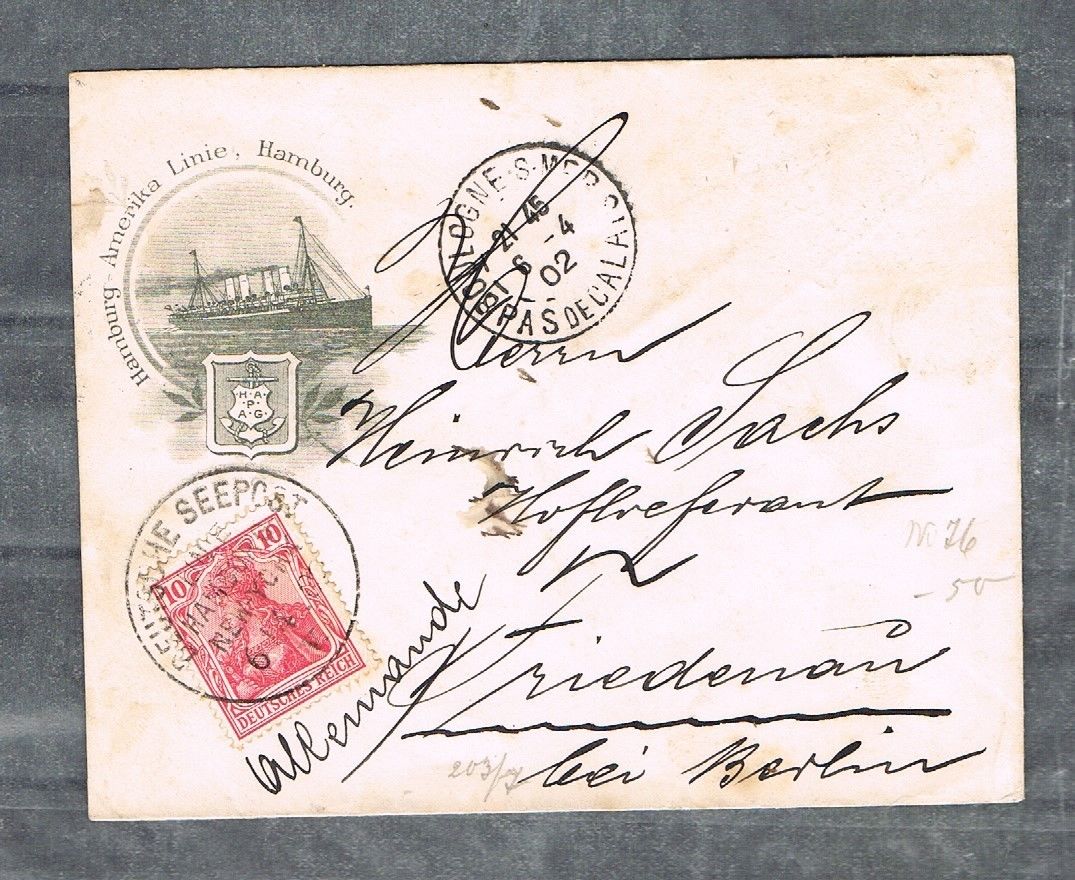 Hamburg-Amerika Linie, Hamburg.
H. A.
P.
A. G.
BOULOGNE-S-MER
21 45
6 -4
02
PAS DE CALAIS
Herrn
Heinrich Sachs
Hoflieferant
in
Friedenau
bei Berlin
Allemande
DEUTSCHE SEEPOST
HAMBURG
NEW
6
10 10
DEUTSCHES REICH
No 76
-50
203/